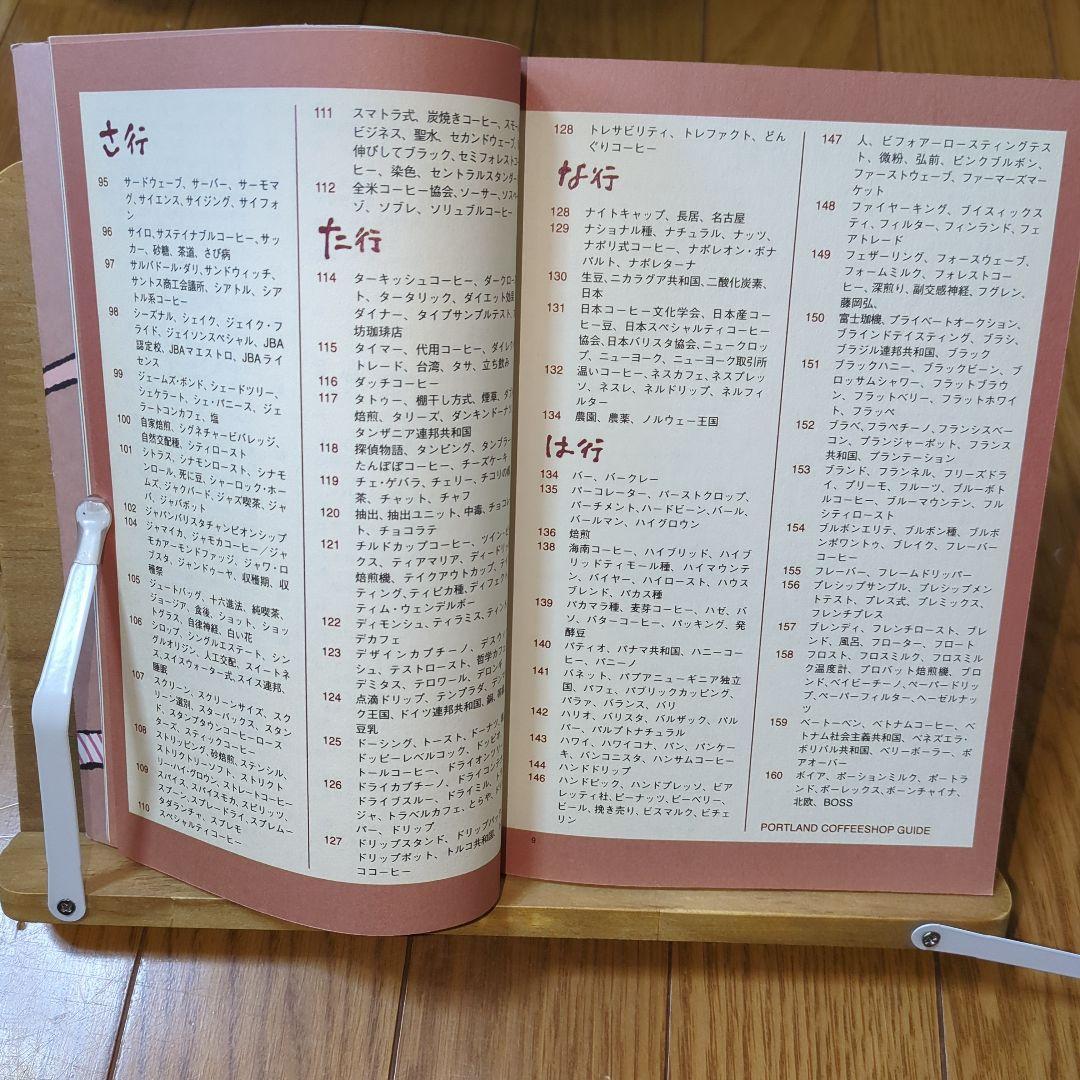 さ行
95 サードウェーブ、サーバー、サーモマ
グ、サイエンス、サイジング、サイフォ
ン
96 サイロ、サステイナブルコーヒー、サッ
カー、砂糖、茶道、さび病
97 サルバドール・ダリ、サンドウィッチ、
サントス商工会議所、シアトル、シア
トル系コーヒー
98 シーズナル、シェイク、ジェイク・フ
ライド、ジェイソンスペシャル、JBA
認定校、JBAマエストロ、JBAライ
センス
99 ジェームズ・ボンド、シェードツリー、
シェケラート、シェ・パニース、ジェ
ラートコンカフェ、塩
100 自家焙煎、シグネチャービバレッジ、
自然交配種、シティロースト
101 シトラス、シナモンロースト、シナモ
ンロール、死に豆、シャーロック・ホー
ムズ、ジャクバード、ジャズ喫茶、ジャ
バ、ジャバポット
102 ジャパンバリスタチャンピオンシップ
104 ジャマイカ、ジャモカコーヒー／ジャ
モカアーモンドファッジ、ジャワ・ロ
ブスタ、ジャンドゥーヤ、収穫期、収
穫祭
105 ジュートバッグ、十六進法、純喫茶、
ジョージア、食後、ショット、ショッ
トグラス、自律神経、白い花
106 シロップ、シングルエステート、シン
グルオリジン、人工交配、スイートネ
ス、スイスウォーター式、スイス連邦、
睡眠
107 スクリーン、スクリーンサイズ、スク
リーン選別、スターバックス、スタン
ド、スタンプタウンコーヒーロース
ターズ、スティックコーヒー
108 ストリッピング、砂焙煎、ステンシル、
ストリクトリーソフト、ストリクト
リー・ハイ・グロウン、ストレートコーヒー
109 スパイス、スパイスモカ、スピリッツ、
スプーン、スプレードライ、スプレムー
タダランチャ、スプレモ
110 スペシャルティコーヒー
111 スマトラ式、炭焼きコーヒー、スモー
ビジネス、聖水、セカンドウェーブ、
伸びしてブラック、セミフォレストコ
ヒー、染色、セントラルスタンダー
112 全米コーヒー協会、ソーサー、ソスペ
ゾ、ソブレ、ソリュブルコーヒー
た行
114 ターキッシュコーヒー、ダークロー
ト、タータリック、ダイエット効果、
ダイナー、タイプサンプルテスト、
坊珈琲店
115 タイマー、代用コーヒー、ダイレク
トレード、台湾、タサ、立ち飲み
116 ダッチコーヒー
117 タトゥー、棚干し方式、煙草、ダブ
焙煎、タリーズ、ダンキンドーナ
タンザニア連邦共和国
118 探偵物語、タンピング、タンブラー
たんぽぽコーヒー、チーズケーキ
119 チェ・ゲバラ、チェリー、チコリの
茶、チャット、チャフ
120 抽出、抽出ユニット、中毒、チョコレ
ト、チョコラテ
121 チルドカップコーヒー、ツイン・ピ
クス、ティアマリア、ディードリ
焙煎機、テイクアウトカップ、テイ
ティング、ティピカ種、ディフェク
ティム・ウェンデルボー
122 ディモンシュ、ティラミス、ティン
デカフェ
123 デザインカプチーノ、デスウィ
シュ、テストロースト、哲学カフェ
デミタス、テロワール、デロンギ
124 点滴ドリップ、テンプラダ、デン
ク王国、ドイツ連邦共和国、銅、
豆乳
125 ドーシング、トースト、ドーナツ、
ドッピーレベルコック、ドッピオ
トールコーヒー、ドライオンフリー
126 ドライカプチーノ、ドライコンテ
ドライブスルー、ドライミル、ト
ジャ、トラベルカフェ、とらや、ド
バー、ドリップ
127 ドリップスタンド、ドリップバッ
ドリップポット、トルコ共和国、
ココーヒー
128 トレサビリティ、トレファクト、どん
ぐりコーヒー
な行
128 ナイトキャップ、長居、名古屋
129 ナショナル種、ナチュラル、ナッツ、
ナポリ式コーヒー、ナポレオン・ボナ
パルト、ナポレターナ
130 生豆、ニカラグア共和国、二酸化炭素、
日本
131 日本コーヒー文化学会、日本産コー
ヒー豆、日本スペシャルティコーヒー
協会、日本バリスタ協会、ニュークロッ
プ、ニューヨーク、ニューヨーク取引所
132 温いコーヒー、ネスカフェ、ネスプレッ
ソ、ネスレ、ネルドリップ、ネルフィ
ルター
134 農園、農薬、ノルウェー王国
は行
134 バー、バークレー
135 パーコレーター、バーストクロップ、
パーチメント、ハードビーン、バール、
バールマン、ハイグロウン
136 焙煎
138 海南コーヒー、ハイブリッド、ハイブ
リッドティモール種、ハイマウンテ
ン、バイヤー、ハイロースト、ハウス
ブレンド、バカス種
139 パカマラ種、麦芽コーヒー、ハゼ、バ
ゾ、バターコーヒー、パッキング、発
酵豆
140 パティオ、パナマ共和国、ハニーコー
ヒー、パニーノ
141 パネット、パプアニューギニア独立
国、パフェ、パブリックカッピング、
パラァ、バランス、バリ
142 ハリオ、バリスタ、バルザック、パル
バー、パルプトナチュラル
143 ハワイ、ハワイコナ、パン、パンケー
キ、パンコニスタ、ハンサムコーヒー
144 ハンドドリップ
146 ハンドピック、ハンドプレッソ、ピア
レッティ社、ピーナッツ、ピーベリー、
ビール、挽き売り、ビスマルク、ピチェ
リン
147 人、ビフォアーロースティングテス
ト、微粉、弘前、ピンクブルボン、
ファーストウェーブ、ファーマーズマー
ケット
148 ファイヤーキング、ブイスィックス
ティ、フィルター、フィンランド、フェ
アトレード
149 フェザーリング、フォースウェーブ、
フォームミルク、フォレストコー
ヒー、深煎り、副交感神経、フグレン、
藤岡弘、
150 富士珈機、プライベートオークション、
ブラインドテイスティング、ブラシ、
ブラジル連邦共和国、ブラック
151 ブラックハニー、ブラックビーン、ブ
ロッサムシャワー、フラットブラウ
ン、フラットベリー、フラットホワイ
ト、フラッペ
152 ブラベ、フラペチーノ、フランシスベー
コン、プランジャーポット、フランス
共和国、プランテーション
153 ブランド、フランネル、フリーズドラ
イ、プリーモ、フルーツ、ブルーボト
ルコーヒー、ブルーマウンテン、フル
シティロースト
154 ブルボンエリテ、ブルボン種、ブルボ
ンポワントゥ、ブレイク、フレーバー
コーヒー
155 フレーバー、フレームドリッパー
156 プレシップサンプル、プレシップメン
トテスト、プレス式、プレミックス、
フレンチプレス
157 ブレンディ、フレンチロースト、ブレ
ンド、風呂、フローター、フロート
158 フロスト、フロスミルク、フロスミル
ク温度計、プロバット焙煎機、ブロ
ンド、ベイビーチーノ、ペーパードリッ
プ、ペーパーフィルター、ヘーゼルナッ
ツ
159 ベートーベン、ベトナムコーヒー、ベ
トナム社会主義共和国、ベネズエラ・
ボリバル共和国、ベリーボーラー、ポ
アオーバー
160 ボイア、ポーションミルク、ポートラ
ンド、ポーレックス、ボーンチャイナ、
北欧、BOSS
PORTLAND COFFEESHOP GUIDE
9